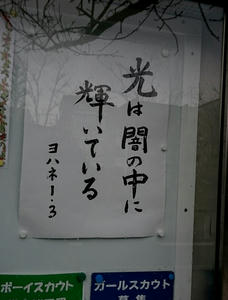 光は闇の中に
輝いている
ヨハネ1・3
ボーイスカウト
ガールスカウト
募集